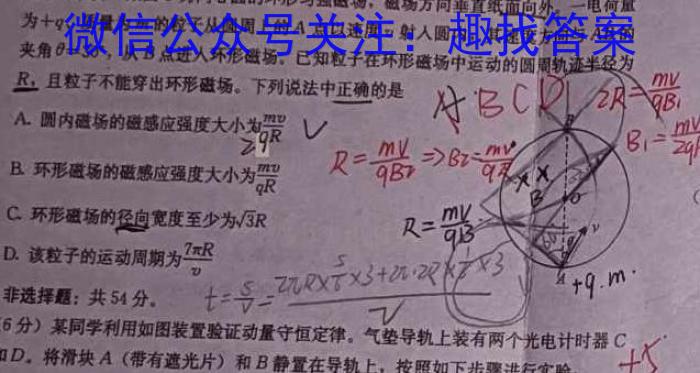 的环形匀强磁场,磁场方向垂直纸面向外。一电荷量
为+q
微信公众号关注:趣找答案
夹角θ=30°,从B点进入环形磁场。已知粒子在环形磁场中运动的圆周轨迹半径为
R,且粒子不能穿出环形磁场。下列说法中正确的是
ABCD
2R=mv/qB₁
A. 圆内磁场的磁感应强度大小为mv/qR
2
B₁=mv/2q
R=mv/qB₂ =>B₂=mv/qR
B. 环形磁场的磁感应强度大小为mv/qR
C. 环形磁场的径向宽度至少为√3R
R=mv/qB
D. 该粒子的运动周期为7πR/v
B
O
v
A
+q.m.
非选择题:共54分。
t=s/v=
6分)某同学利用如图装置验证动量守恒定律。气垫导轨上装有两个光电计时器C
和D。将滑块A(带有遮光片)和B静置在导轨上,按照如下步骤进行实验
+5